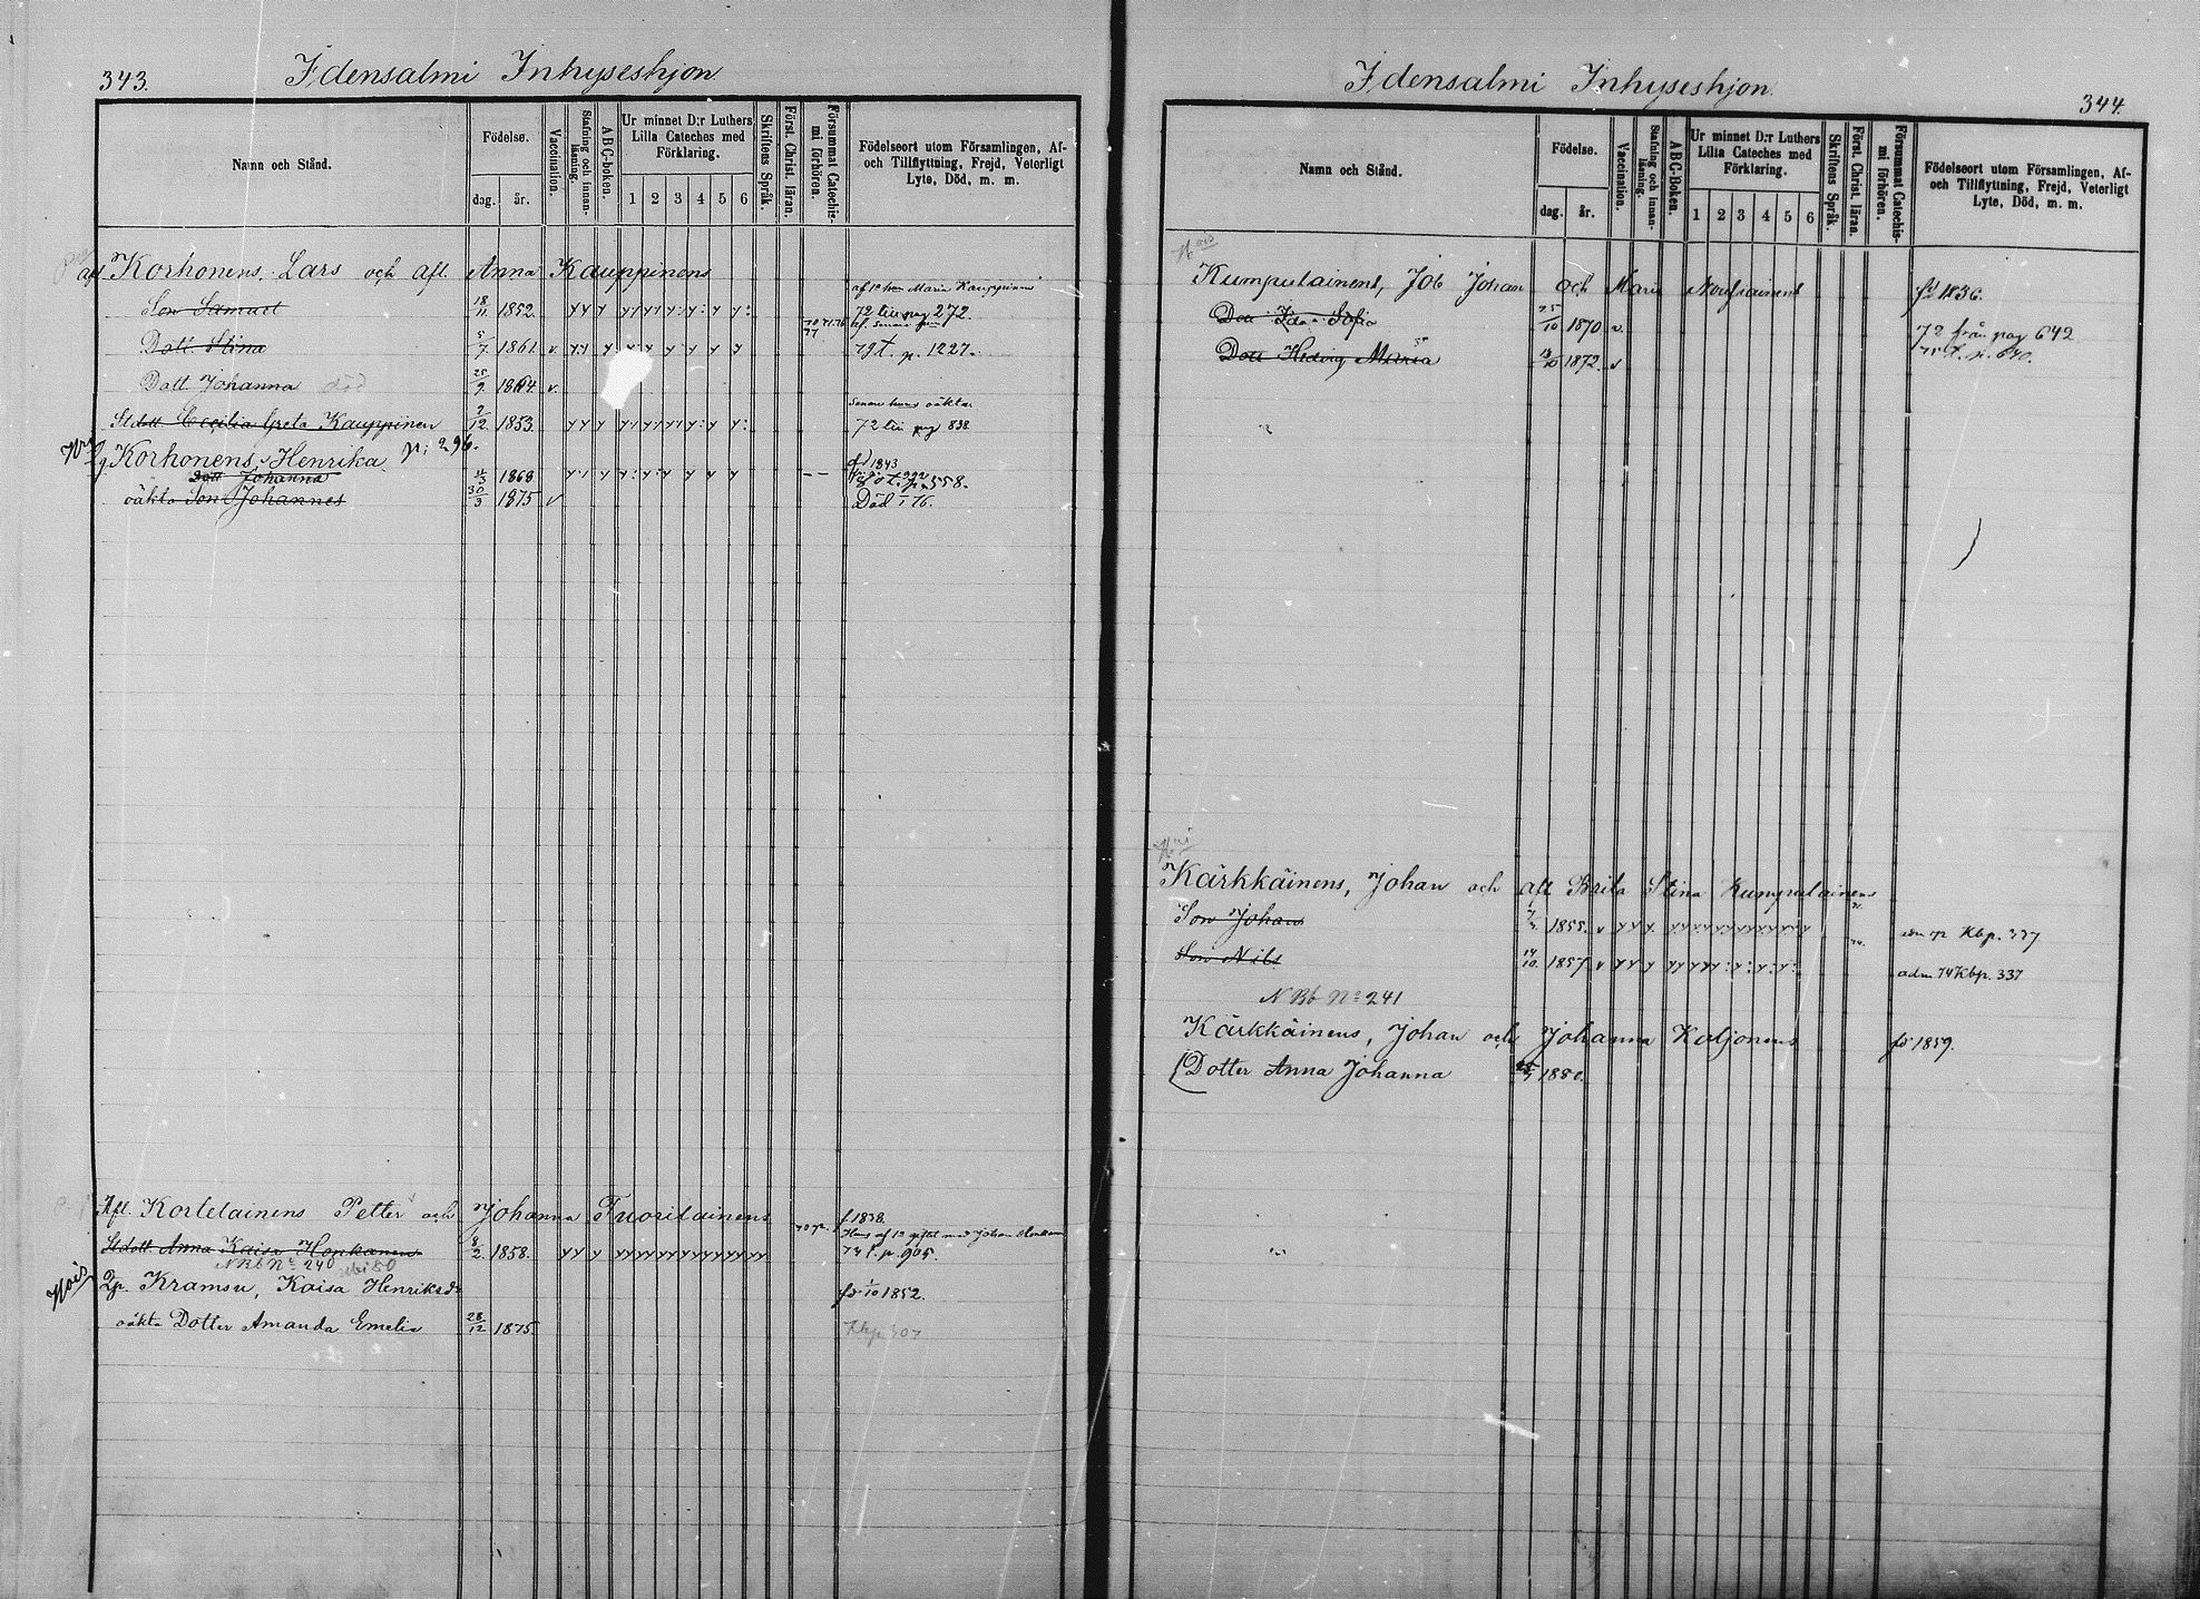 343.
Idensalmi Inhyseshjon
Namn och Stånd.
Födelse.
dag.
år.
Vaccination.
Stafning och innan-läsning.
ABC-boken.
Ur minnet D:r Luthers Lilla Cateches med Förklaring.
1 2 3 4 5 6
Skriftens Språk.
Först. Christ. läran.
Försummat Catechis-mi förhören.
Födelseort utom Församlingen, Af- och Tillflyttning, Frejd, Veterligt Lyte, Död, m. m.
afl. Korhonens, Lars och afl. Anna Kauppinens
Son Samuel 18/11 1852. 72 till pag 272.
Dott. Stina 5/7 1861 v. 79 t. p. 1227.
Dott Johanna död 25/9 1864 v.
Stdott Cecilia Greta Kauppinen 2/12 1853. 72 till pag 838
Korhonens, Henrika p: 296. fd 1843
Dott Johanna 1868 t. p. 558.
oäkta Son Johannes 30/3 1875 v Död 76.
Afl. Kortelainens Petter och Johanna Tuorilainens f. 1838.
Stdott. Anna Kaisa Honkanens 8/2 1858. 74 t. p. 905.
N Bb No 240
Kramsu, Kaisa Henriksdr fd 1/10 1852.
oäkta Dotter Amanda Emelie 28/12 1875. Kbp 307
344.
Idensalmi Inhyseshjon.
Namn och Stånd.
Födelse.
dag.
år.
Vaccination.
Stafning och innan-läsning.
ABC-Boken.
Ur minnet D:r Luthers Lilla Cateches med Förklaring.
1 2 3 4 5 6
Skriftens Språk.
Först. Christ. läran.
Försummat Catechis-mi förhören.
Födelseort utom Församlingen, Af- och Tillflyttning, Frejd, Veterligt Lyte, Död, m. m.
Kumpulainens, Job Johan och Maria fd 1836.
Dott Ida Sofia 25/10 1870 v. 72 från pag 642
Dott Hedvig Maria 1872. v 75 t. p. 640.
Kärkkäinens, Johan och afl Brita Stina Kumpulainens
Son Johan 1855. v Kbp. 337
Son Nils 14/10 1857 v adm 74 Kbp. 337
N Bb No 241
Kärkkäinens, Johan och Johanna Koljonens fd 1859.
Dotter Anna Johanna 1880.